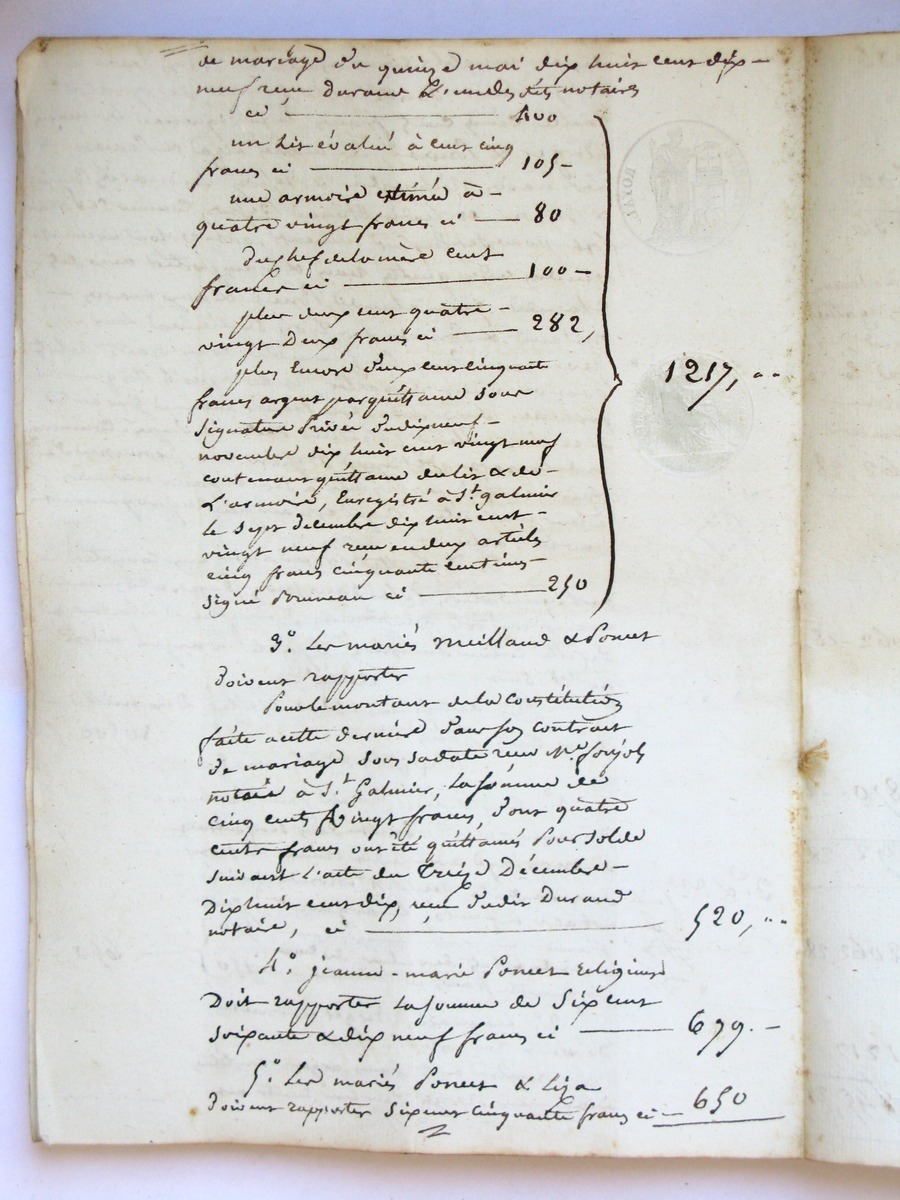 de mariage du quinze mai dix huit cent dix-
neuf reçu Durand L'un desdits notaires
ci 400
un lit évalué à cent cinq
francs ci 105-
une armoire estimée à-
quatre vingt francs ci 80
du chef de la mère cent
francs ci 100-
plus deux cent quatre-
vingt Deux francs ci 282,
plus Encore deux cent cinquante
francs argent par quittance sous
Signature Privée du dix neuf-
novembre dix huit cent vingt neuf
contenant quittance du lit & de-
L'armoire, Enregistré à St. galmier
le sept décembre dix huit cent-
vingt neuf reçu en deux articles
cinq francs cinquante centimes-
signé Pouveau ci 250
1217, ..
3° Les mariés meilland & Poncet
doivent rapporter
Pour le montant de la Constitution
faite a cette dernière dans son contrat
de mariage Sous sa date reçu Me.
notaire à St. Galmier, La somme de
cinq cents vingt francs, dont quatre
cents francs ont été quittancés Pour solde
suivant L'acte du Treize Décembre-
Dix huit cent dix, reçu dudit Durand
notaire, ci 520, ..
4° jeanne-marie Poncet religieuse
Doit rapporter La somme de Six cent
soixante & dix neuf francs ci 679.-
5° Les mariés Poncet & Liza
doivent rapporter six cent cinquante francs ci- 650